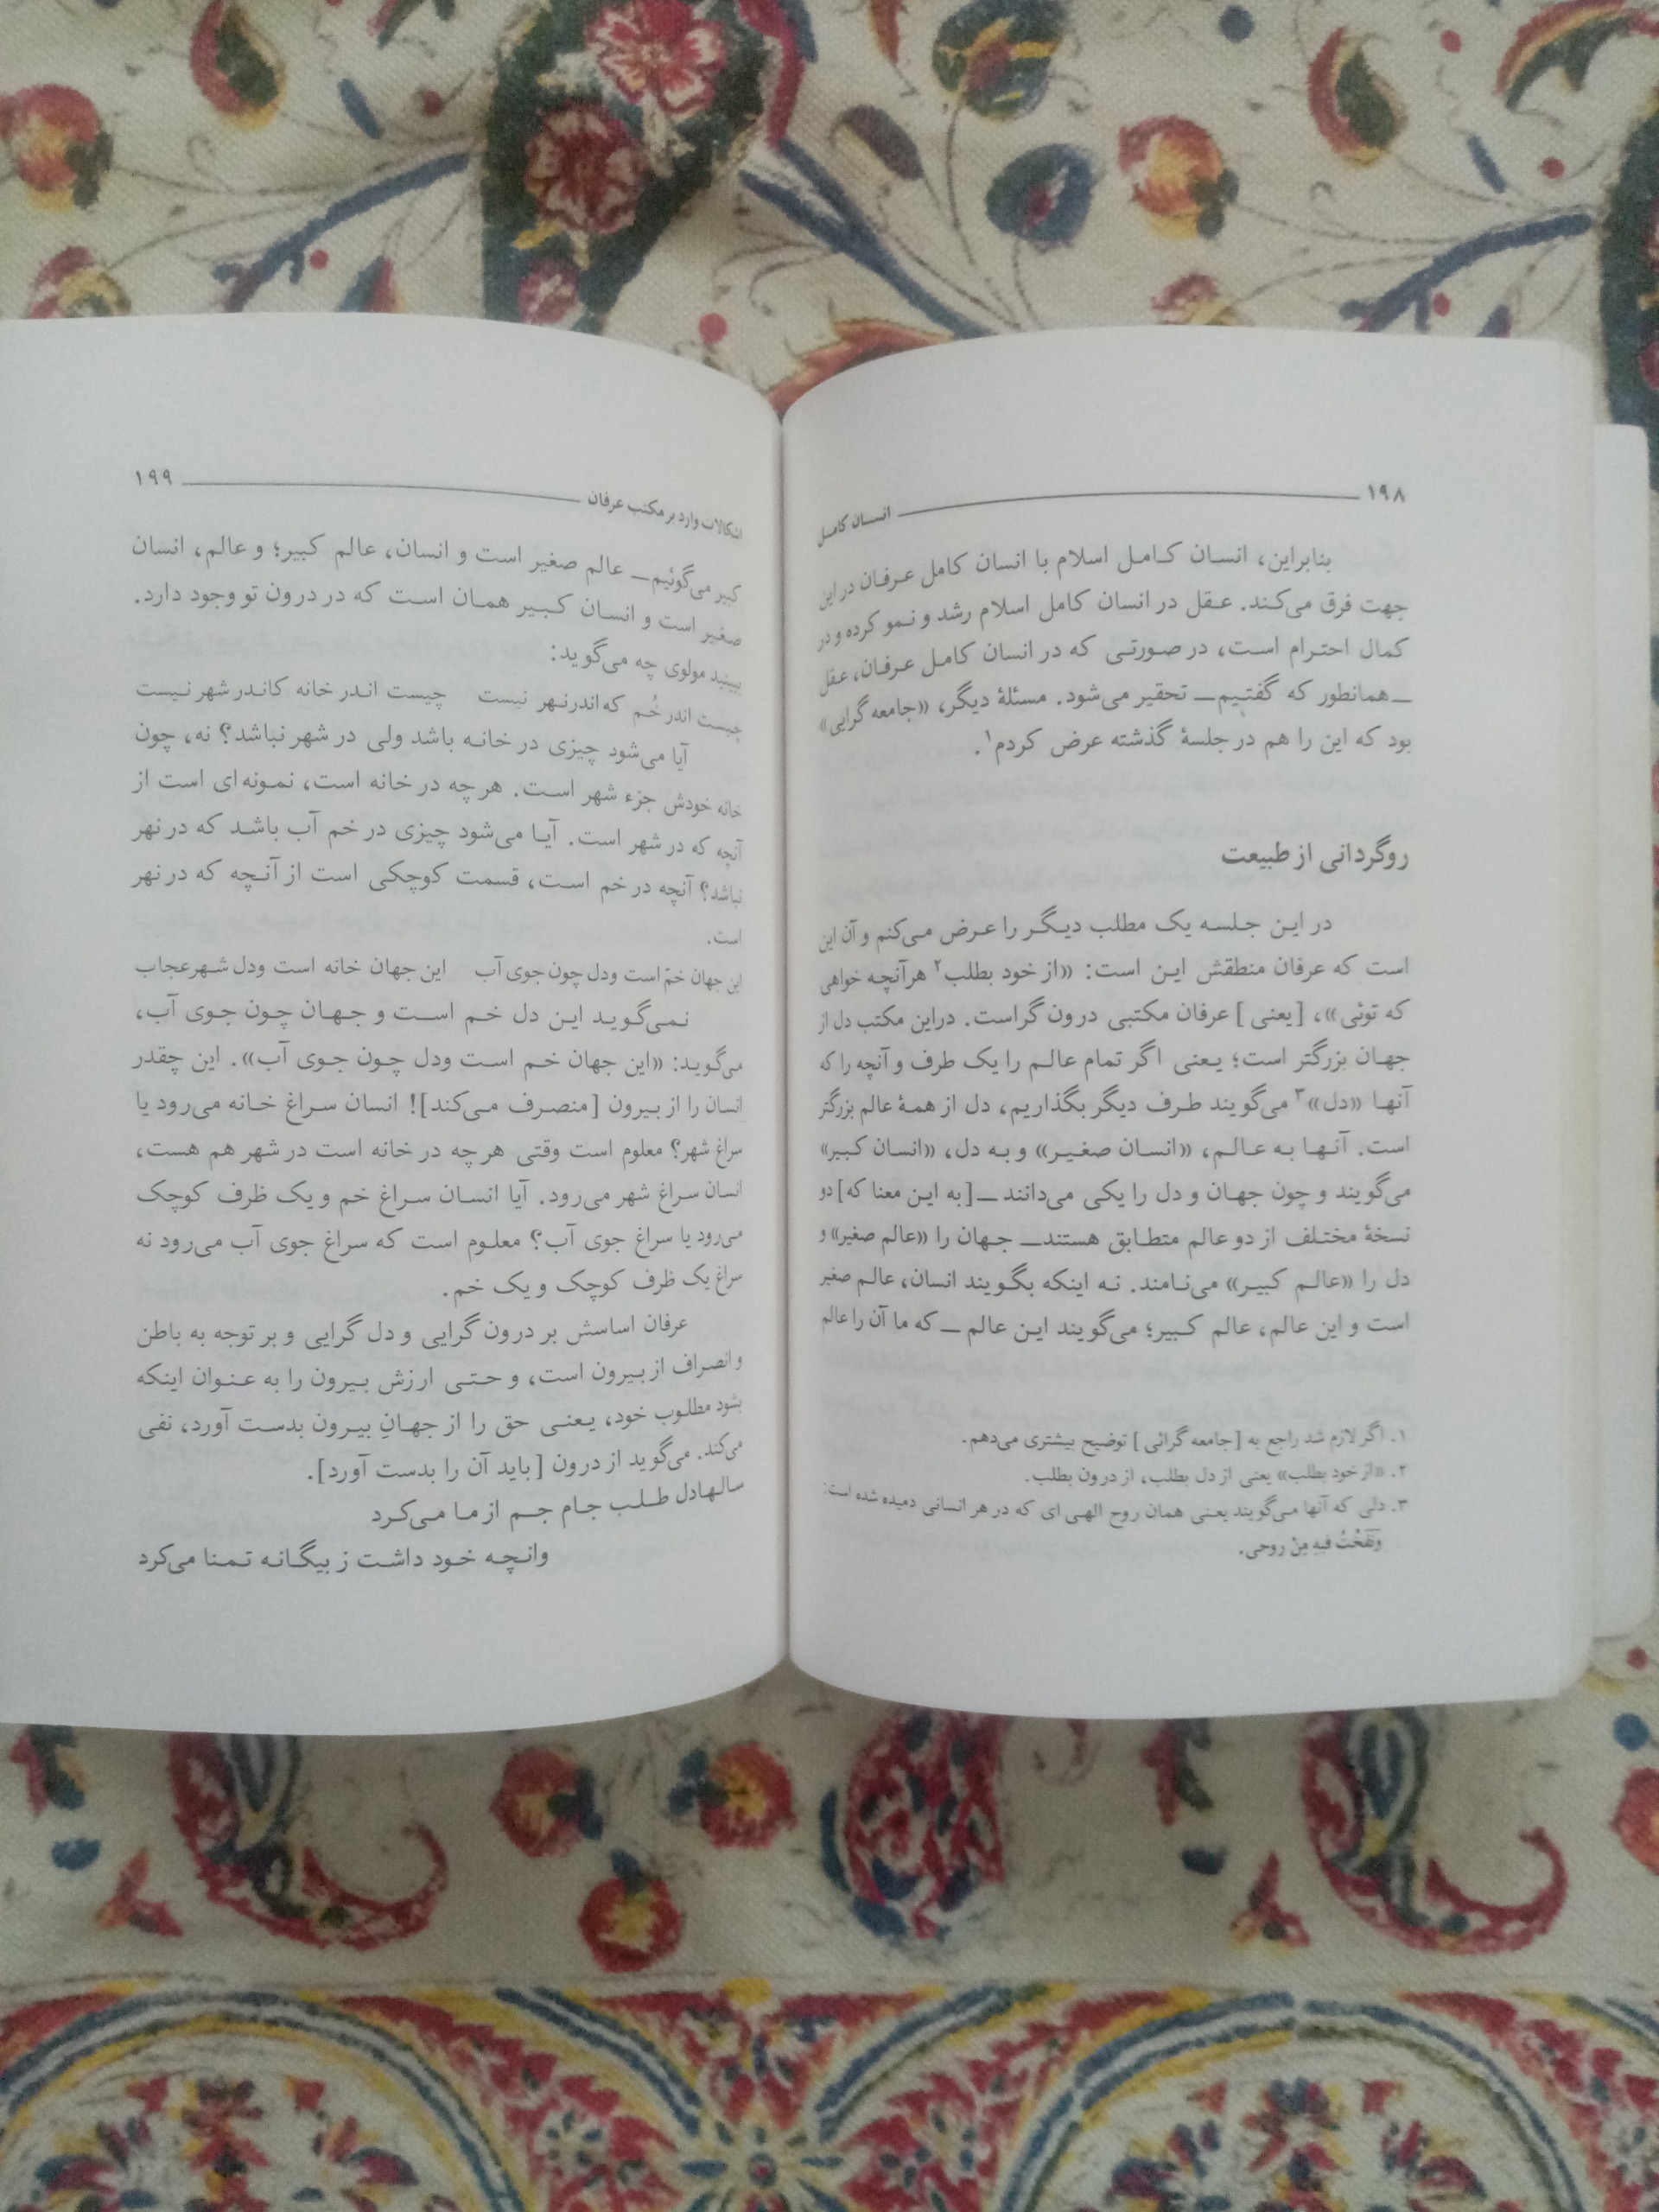 ۱۹۸
انسان کامل
بنابراین، انسان کامل اسلام با انسان کامل عرفان در این
جهت فرق می‌کند. عقل در انسان کامل اسلام رشد و نمو کرده و در
کمال احترام است، در صورتی که در انسان کامل عرفان، عقل
ــ همانطور که گفتیم ــ تحقیر می‌شود. مسئلهٔ دیگر، «جامعه گرایی»
بود که این را هم در جلسهٔ گذشته عرض کردم۱.
روگردانی از طبیعت
در این جلسه یک مطلب دیگر را عرض می‌کنم و آن این
است که عرفان منطقش این است: «از خود بطلب۲ هرآنچه خواهی
که توئی»، [یعنی] عرفان مکتبی درون گراست. دراین مکتب دل از
جهان بزرگتر است؛ یعنی اگر تمام عالم را یک طرف و آنچه را که
آنها «دل»۳ می‌گویند طرف دیگر بگذاریم، دل از همهٔ عالم بزرگتر
است. آنها به عالم، «انسان صغیر» و به دل، «انسان کبیر»
می‌گویند و چون جهان و دل را یکی می‌دانند ــ [به این معنا که] دو
نسخهٔ مختلف از دو عالم متطابق هستند ــ جهان را «عالم صغیر» و
دل را «عالم کبیر» می‌نامند. نه اینکه بگویند انسان، عالم صغیر
است و این عالم، عالم کبیر؛ می‌گویند این عالم ــ که ما آن را عالم
۱. اگر لازم شد راجع به [جامعه گرائی] توضیح بیشتری می‌دهم.
۲. «از خود بطلب» یعنی از دل بطلب، از درون بطلب.
۳. دلی که آنها می‌گویند یعنی همان روح الهی ای که در هر انسانی دمیده شده است:
وَنَفَخْتُ فیهِ مِنْ روحی.
۱۹۹
اشکالات وارد بر مکتب عرفان
کبیر می‌گوئیم ــ عالم صغیر است و انسان، عالم کبیر؛ و عالم، انسان
صغیر است و انسان کبیر همان است که در درون تو وجود دارد.
ببینید مولوی چه می‌گوید:
چیست اندر خُم که اندر نهر نیست چیست اندر خانه کاندر شهر نیست
آیا می‌شود چیزی در خانه باشد ولی در شهر نباشد؟ نه، چون
خانه خودش جزء شهر است. هر چه در خانه است، نمونه‌ای است از
آنچه که در شهر است. آیا می‌شود چیزی در خم آب باشد که در نهر
نباشد؟ آنچه در خم است، قسمت کوچکی است از آنچه که در نهر
است.
این جهان خمّ است ودل چون جوی آب این جهان خانه است ودل شهر عجاب
نمی‌گوید این دل خم است و جهان چون جوی آب،
می‌گوید: «این جهان خم است ودل چون جوی آب». این چقدر
انسان را از بیرون [منصرف می‌کند]! انسان سراغ خانه می‌رود یا
سراغ شهر؟ معلوم است وقتی هر چه در خانه است در شهر هم هست،
انسان سراغ شهر می‌رود. آیا انسان سراغ خم و یک ظرف کوچک
می‌رود یا سراغ جوی آب؟ معلوم است که سراغ جوی آب می‌رود نه
سراغ یک ظرف کوچک و یک خم.
عرفان اساسش بر درون گرایی و دل گرایی و بر توجه به باطن
و انصراف از بیرون است، و حتی ارزش بیرون را به عنوان اینکه
بشود مطلوب خود، یعنی حق را از جهانِ بیرون بدست آورد، نفی
می‌کند. می‌گوید از درون [باید آن را بدست آورد].
سالها دل طلب جام جم از ما می‌کرد
وانچه خود داشت ز بیگانه تمنا می‌کرد